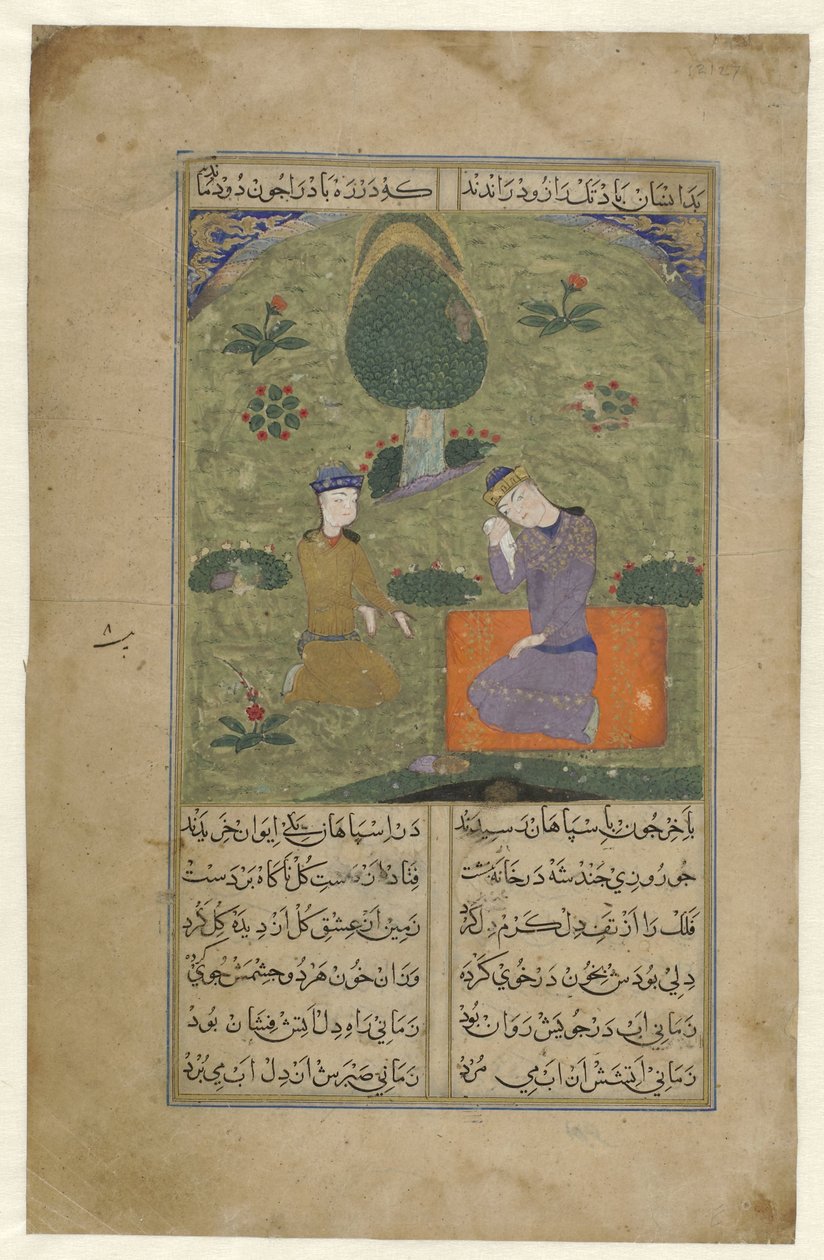 12127
بدانسان باد تک رازود راندند که در ره باد را چون دود ماندند
باخر چون باسپاهان رسیدند در اسپاهان یکی ایوان خریدند
چو روزی چند شه در خانه بنشست فتاد از دست کل ناکاه بر دست
فلک را از تف دل کرم دل کرد زمین از عشق کل از دیده کل کرد
دلی بودش بخون در خوی کرده وزان خون هر دو چشمش جوی کرده
زمانی اب در جویش روان بود زمانی راه دل اتش فشان بود
زمانی اتشش ان اب می مرد زمانی صبرش ان دل اب می برد